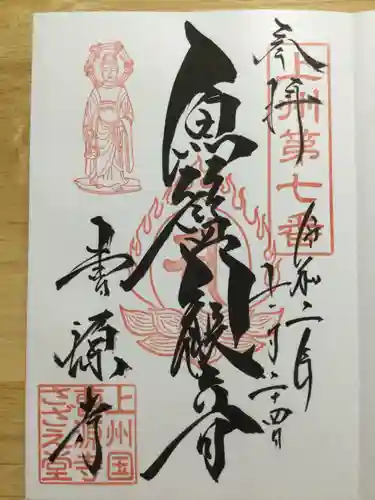 奉拝
上州第七番
令和二年
月二十四日
魚籃観音
曹源寺
上州国
曹源寺
さざえ堂